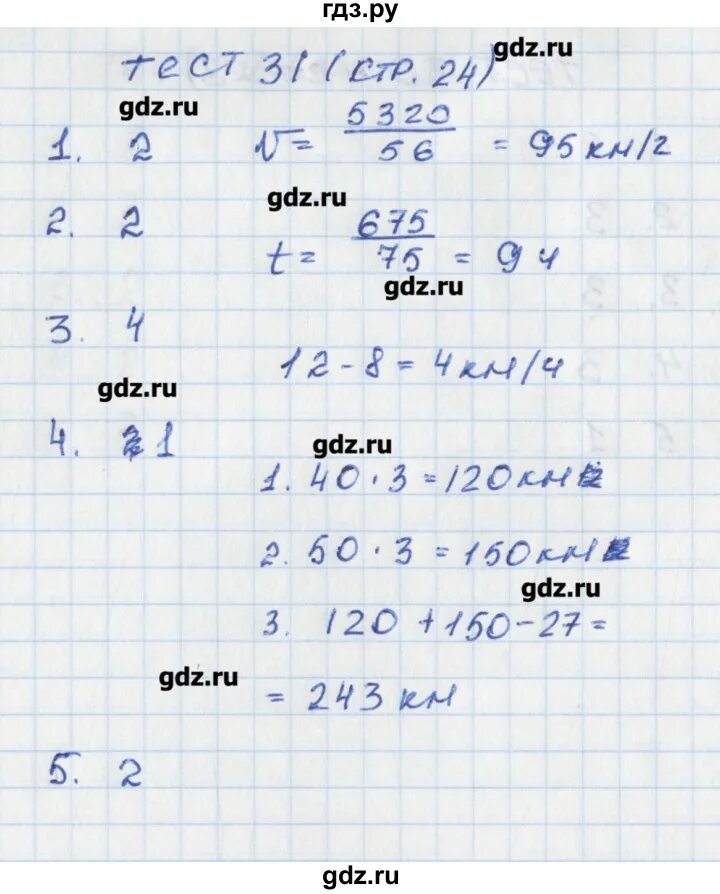 гдз.ру
gdz.ru
тест 31 (стр. 24)
gdz.ru
1. 2 V = 5320/56 = 95 км/ч
gdz.ru
2. 2 t = 675/75 = 9 ч
gdz.ru
3. 4
12 - 8 = 4 км/ч
gdz.ru
4. 1
gdz.ru
1. 40 · 3 = 120 км
2. 50 · 3 = 150 км
gdz.ru
3. 120 + 150 - 27 =
gdz.ru
= 243 км
5. 2
gdz.ru